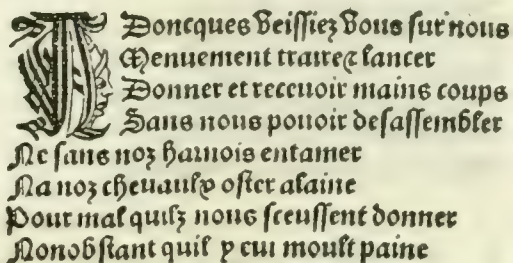 ADoncques veissiez vous sur nous
Menuement traire ⁊ lancer
Donner et recevoir mains coups
Sans nous pouoir desassembler
Ne sans noz harnois entamer
Na noz chevaulx oster alaine
Pour mal quilz nous sceussent donner
Nonobstant quil y eut moult paine